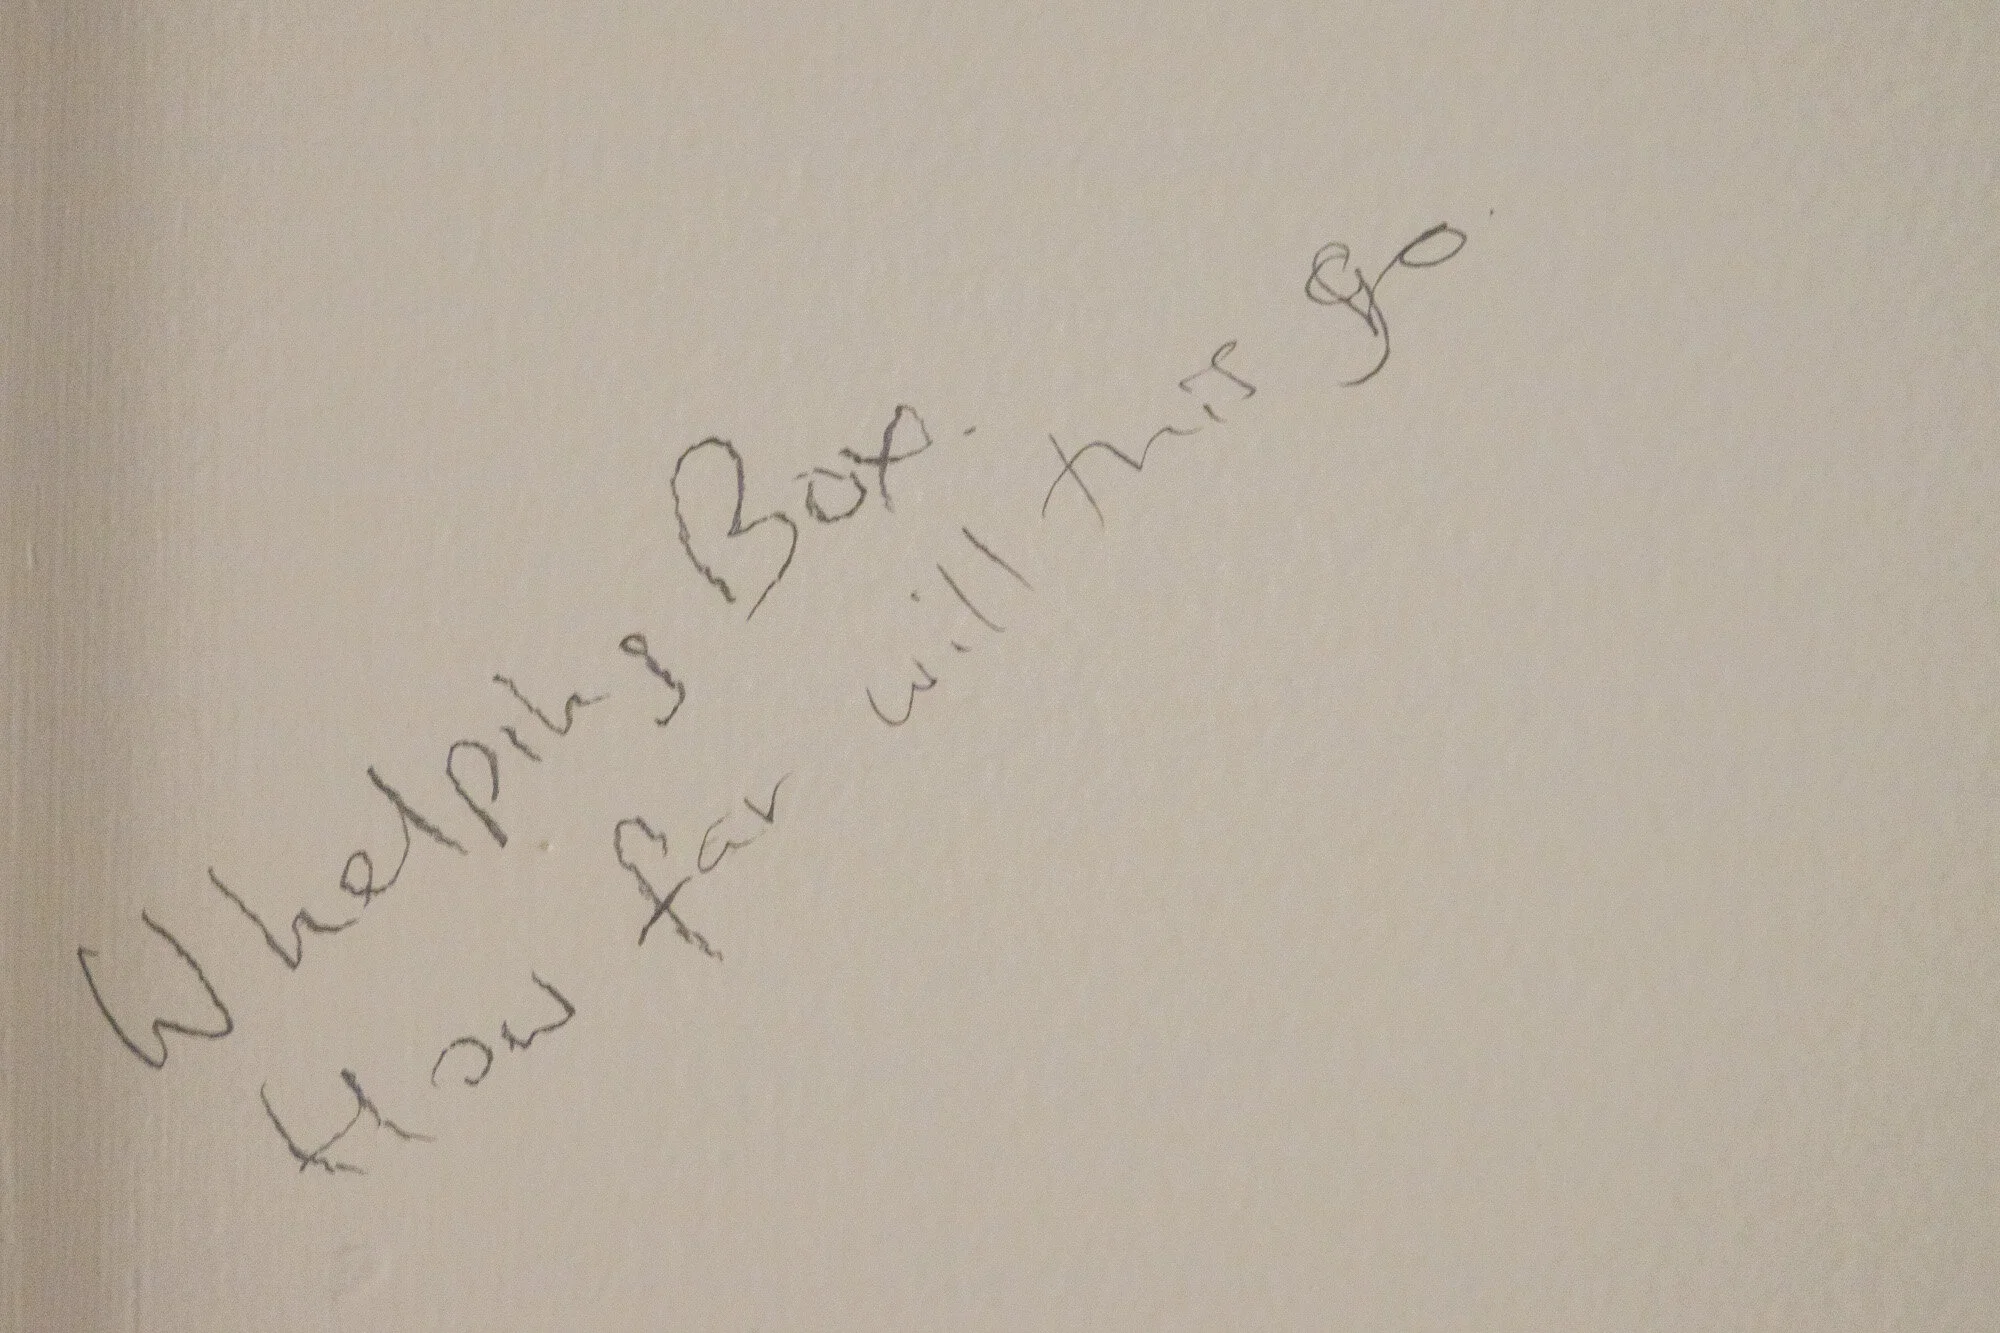 Whelping Box.
How far will this go.